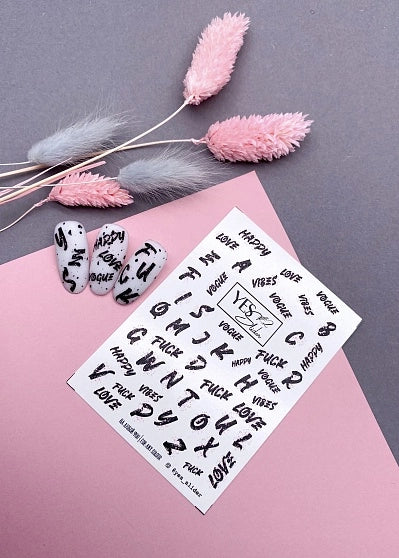 HAPPY
LOVE
VOGUE
HAPPY
LOVE
A
VIBES
LOVE
VOGUE
H
VOGUE
VOGUE
8
I
S
YES
Slider
C
O
M
J
K
VOGUE
G
W
FUCK
D
FUCK
HAPPY
HAPPY
N
HAPPY
H
R
V
FUCK
VIBES
T
FUCK
VIBES
LOVE
D
Y
O
U
LOVE
Z
X
L
FUCK
LOVE
@yes_slider